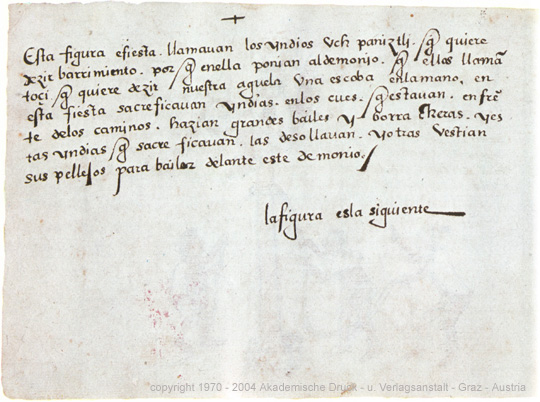 +
Esta figura esfiesta. llamavan los yndios vch paniztli. q̃ quiere
dezir barrimiento. porq̃ enella ponian aldemonio. q̃ ellos llamã
toçi. q̃ quiere dezir nuestra aguela vna escoba enlamano, en
esta fiesta sacreficauan yndias. enlos cues. q̃estauan. enfrẽ
te delos caminos. hazian grandes bailes y borra cheras. yes
tas yndias q̃ sacre ficauan. las desollauan. yotras vestian
sus pellejos para bailar delante este demonio.
la figura esla siguiente
copyright 1970 - 2004 Akademische Druck - u. Verlagsanstalt - Graz - Austria